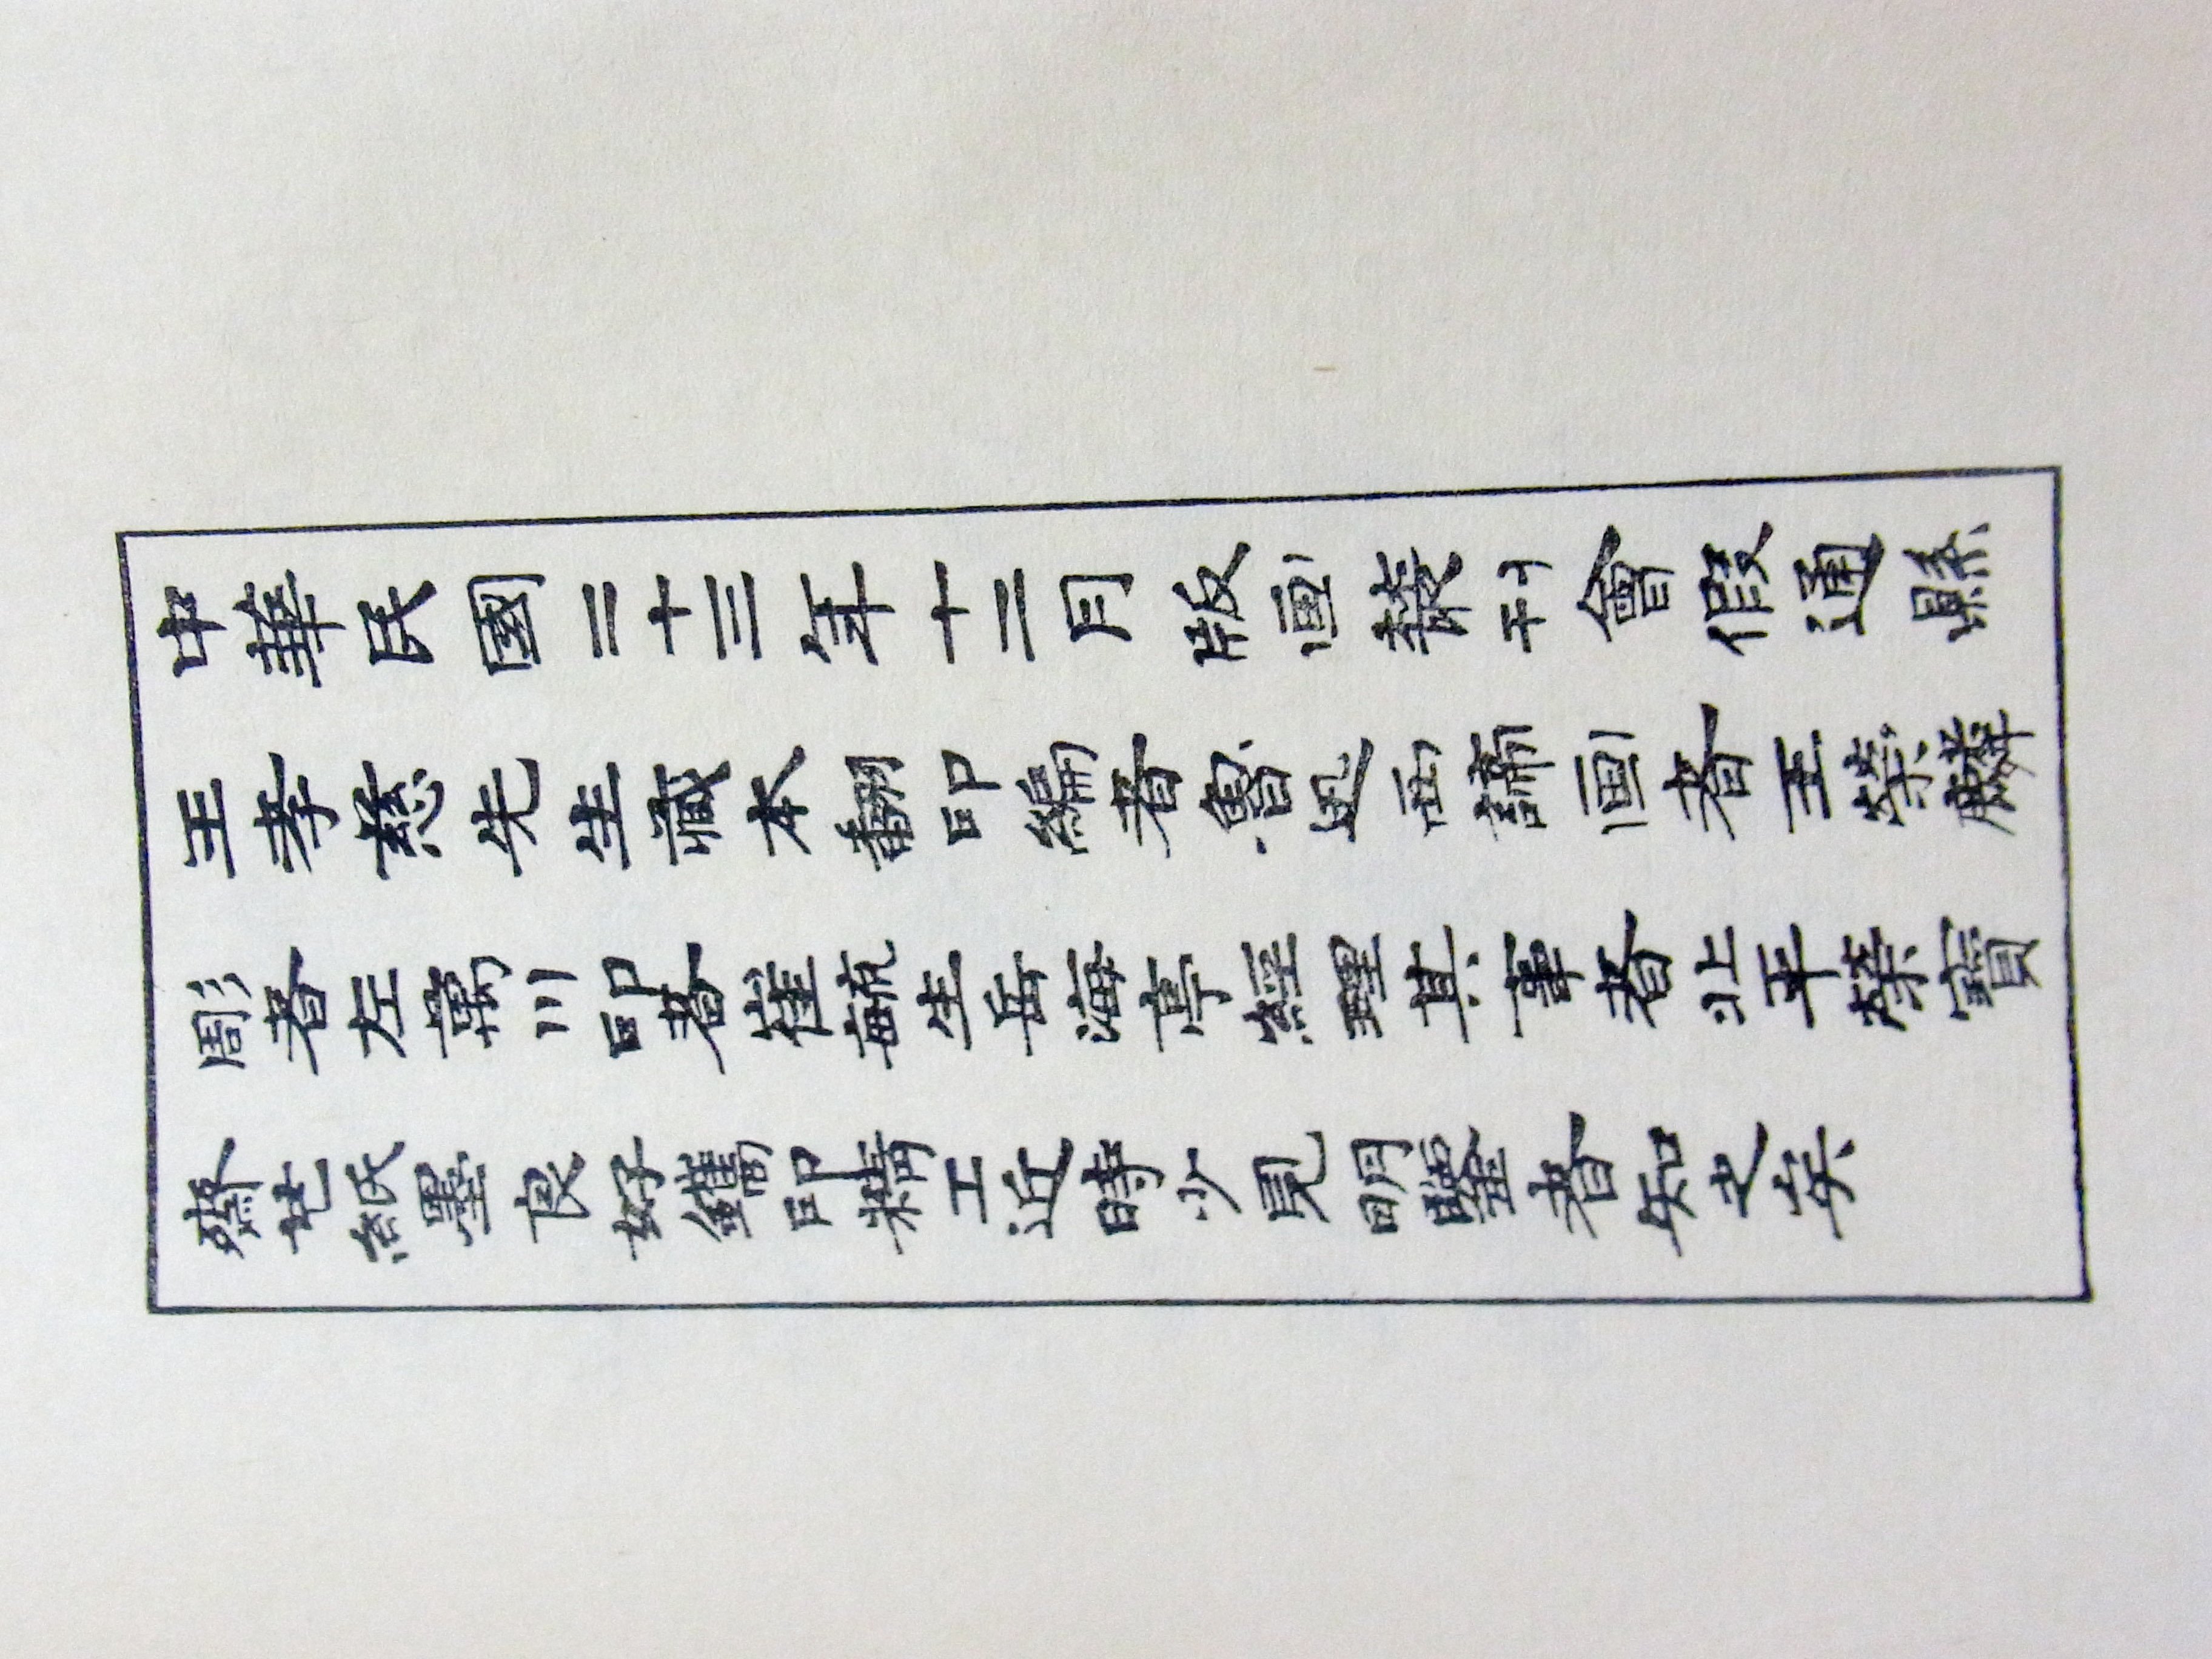 中華民國二十三年十二月版畫叢刊會假通縣
王孝慈先生藏本翻印編者魯迅西諦畫者王榮麟
彫者左萬川印者崔毓生岳海亭經理其事者北平榮寶
齋也紙墨良好鐫印精工近時少見明鑒者知之矣